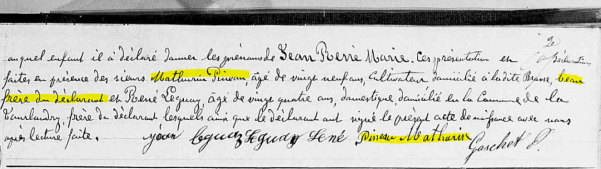 auquel enfant il a déclaré donner les prénoms de Jean René Marie. Ces présentation et déclaration
faites en présence des sieurs Mathurin Pineau, âgé de vingt neuf ans, cultivateur domicilié à ladite Brosse, beau
frère du déclarant et René Leguay, âgé de vingt quatre ans, domestique domicilié en la Commune de la
Tourlandry, frère du déclarant lesquels ainsi que le déclarant ont signé le présent acte de naissance avec nous
après lecture faite. Leguay Leguay René Pineau Mathurin
Gaschet P.